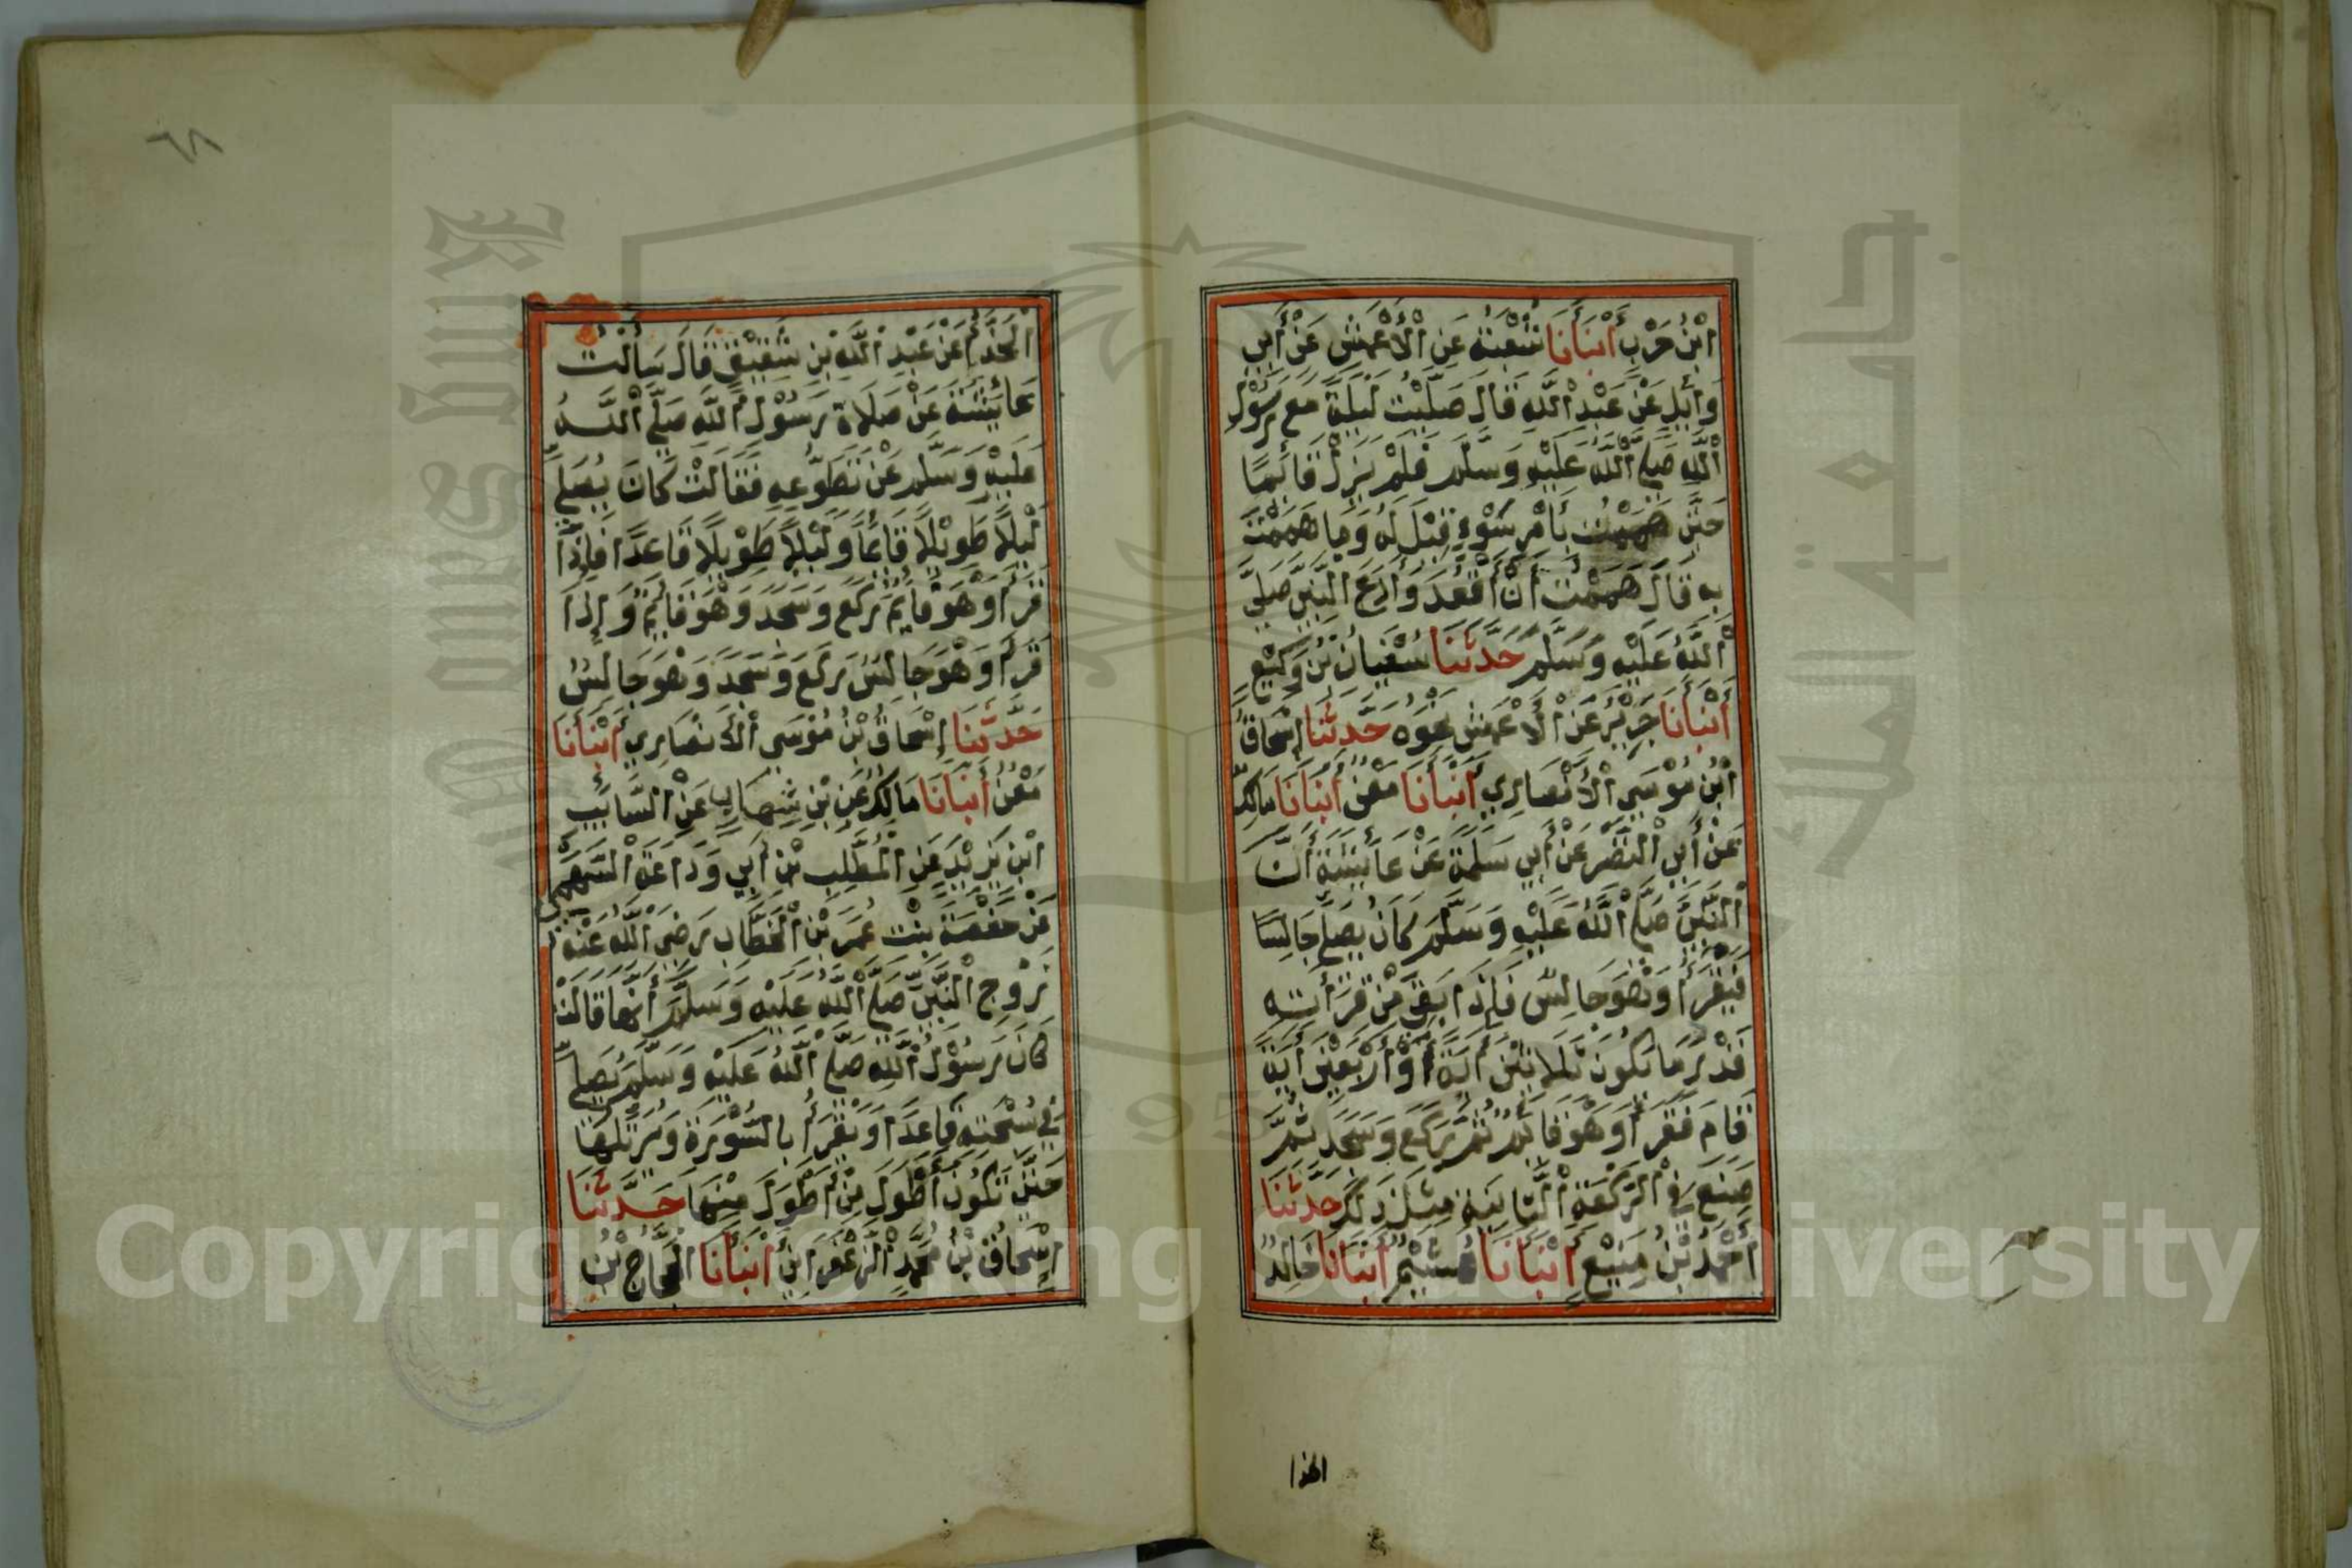 ابْنُ حَرْبٍ أَنْبَأَنَا شُعْبَةُ عَنِ الْأَعْمَشِ عَنْ أَبِي
وَائِلٍ عَنْ عَبْدِ اللَّهِ قَالَ صَلَّيْتُ لَيْلَةً مَعَ رَسُوْلِ
اللَّهِ صَلَّى اللَّهُ عَلَيْهِ وَسَلَّمَ فَلَمْ يَزَلْ قَائِمًا
حَتَّى هَمَمْتُ بِأَمْرِ سُوْءٍ قِيْلَ لَهُ وَمَا هَمَمْتَ
بِهِ قَالَ هَمَمْتُ أَنْ أَقْعُدَ وَأَدَعَ النَّبِيَّ صَلَّى
اللَّهُ عَلَيْهِ وَسَلَّمَ حَدَّثَنَا سُفْيَانُ بْنُ وَكِيْعٍ
أَنْبَأَنَا جَرِيْرٌ عَنْ الْأَعْمَشِ نَحْوَهُ حَدَّثَنَا إِسْحَاقُ
ابْنُ مُوْسَى الْأَنْصَارِي أَنْبَأَنَا مَعْنٌ أَنْبَأَنَا مَالِكٌ
عَنْ أَبِي النَّضْرِ عَنْ أَبِي سَلَمَةَ عَنْ عَائِشَةَ أَنَّ
النَّبِيَّ صَلَّى اللَّهُ عَلَيْهِ وَسَلَّمَ كَانَ يُصَلِّي جَالِسًا
فَيَقْرَأُ وَهُوَ جَالِسٌ فَإِذَا بَقِيَ مِنْ قِرَأَتِهِ
قَدْرُ مَا تَكُوْنُ ثَلَاثِيْنَ أَيَةً أَوْ أَرْبَعِيْنَ أَيَةً
قَامَ فَقَرَأَ وَهُوَ قَائِمٌ ثُمَّ رَكَعَ وَسَجَدَ ثُمَّ
صَنَعَ فِي الرَّكْعَةِ الثَّانِيَةِ مِثْلَ ذَلِكَ حَدَّثَنَا
أَحْمَدُ بْنُ مَنِيْعٍ أَنْبَأَنَا هُشَيْمٌ أَنْبَأَنَا خَالِدٌ
الحذا
٦٨
الْحَذَّاءُ عَنْ عَبْدِ اللَّهِ بْنِ شَقِيْقٍ قَالَ سَأَلْتُ
عَائِشَةَ عَنْ صَلَاةِ رَسُوْلِ اللَّهِ صَلَّى اللَّهُ
عَلَيْهِ وَسَلَّمَ عَنْ تَطَوُّعِهِ فَقَالَتْ كَانَ يُصَلِّي
لَيْلًا طَوِيْلًا قَائِمًا وَلَيْلًا طَوِيْلًا قَاعِدًا فَإِذَا
قَرَأَ وَهُوَ قَائِمٌ رَكَعَ وَسَجَدَ وَهُوَ قَائِمٌ وَإِذَا
قَرَأَ وَهُوَ جَالِسٌ رَكَعَ وَسَجَدَ وَهُوَ جَالِسٌ
حَدَّثَنَا إِسْحَاقُ بْنُ مُوْسَى الْأَنْصَارِي أَنْبَأَنَا
مَعْنٌ أَنْبَأَنَا مَالِكٌ عَنِ بْنِ شِهَابٍ عَنْ السَّائِبِ
ابْنِ يَزِيْدَ عَنِ الْمُطَّلِبِ بْنِ أَبِي وَدَاعَةَ السَّهْمِيِّ
عَنْ حَفْصَةَ بِنْتِ عُمَرَ بْنِ الْخَطَّابِ رَضِيَ اللَّهُ عَنْهُ
زَوْجِ النَّبِيِّ صَلَّى اللَّهُ عَلَيْهِ وَسَلَّمَ أَنَّهَا قَالَتْ
كَانَ رَسُوْلُ اللَّهِ صَلَّى اللَّهُ عَلَيْهِ وَسَلَّمَ يُصَلِّي
فِي سُبْحَتِهِ قَاعِدًا وَيَقْرَأُ بِالسُّوْرَةِ وَيُرَتِّلُهَا
حَتَّى تَكُوْنَ أَطْوَلَ مِنْ أَطْوَلَ مِنْهَا حَدَّثَنَا
إِسْحَاقُ بْنُ مُحَمَّدٍ الزَّعْفَرَانِيُّ أَنْبَأَنَا الْحَجَّاجُ بْنُ
Copyright © King Saud University
King Saud University
جامعة الملك سعود